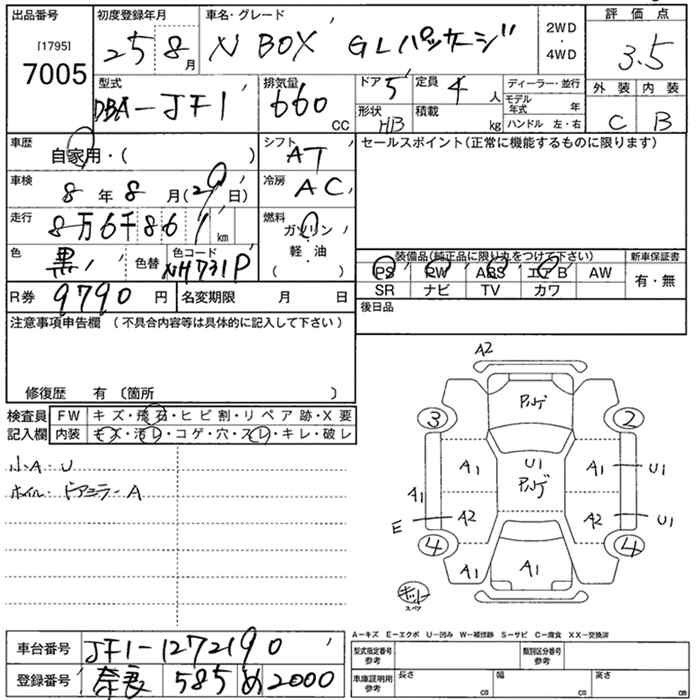 出品番号 初度登録年月 車名・グレード 2WD ・ 4WD 評価点
[1795] 7005 25 8月 N BOX GLパッケージ 3.5
型式 排気量 ドア 5 定員 4人 ディーラー・並行 外装 内装
DBA-JF1 660 CC 形状 HB 積載 kg モデル年式 年 ハンドル 左・右 C B
車歴 自家用・( ) シフト AT セールスポイント(正常に機能するものに限ります)
車検 8年8月(29日) 冷房 AC
走行 8万6千86 km 燃料 ガソリン
色 黒 色替 色コード NH731P 軽・油 ( )
装備品(純正品に限り丸をつけて下さい) 新車保証書
PS PW ABS エアB AW 有・無
SR ナビ TV カワ
R券 9790円 名変期限 月 日 後日品
注意事項申告欄 (不具合内容等は具体的に記入して下さい)
修復歴 有 〔箇所 〕
検査員 FW キズ・飛石・ヒビ割・リペア跡・X要
記入欄 内装 キズ・汚レ・コゲ・穴・スレ・キレ・破レ
小A・U
ホイル・ドアミラーA
A2
3 2
A1 A1 U1
U1
A1
E A2 A2 U1
4 4
A1 A1
キット
スペア
A-キズ E-エクボ U-凹み W-補修跡 S-サビ C-腐食 XX-交換済
車台番号 JF1-1272190 型式指定番号 参考 類別区分番号 参考
登録番号 奈良 585 め 2000 車庫証明用 参考 長さ cm 幅 cm 高さ cm